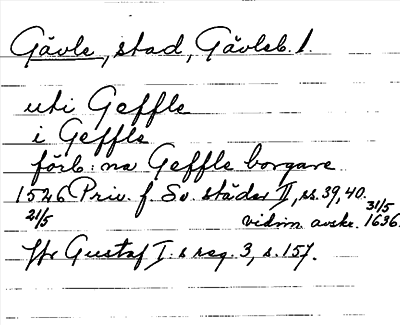 Gävle, stad, Gävleb. l.
uti Geffle
i Geffle
förb:na Geffle borgare
1526 Priv. f. Sv. städer II, ss. 39, 40.
21/5 vidim. avskr. 31/5 1636.
Gustaf I:s reg. 3, s. 157.